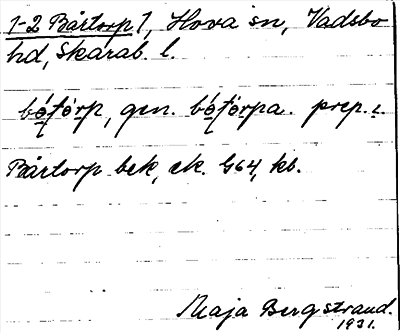 1-2 Bårtorp 1, Hova sn, Vadsbo
hd, Skarab. l.
bó̱t́o̱rp, gen. bó̱t́o̱rpa. prep. i.
Bårtorp bek, ek. G64, kb.
Maja Bergstrand.
1931.